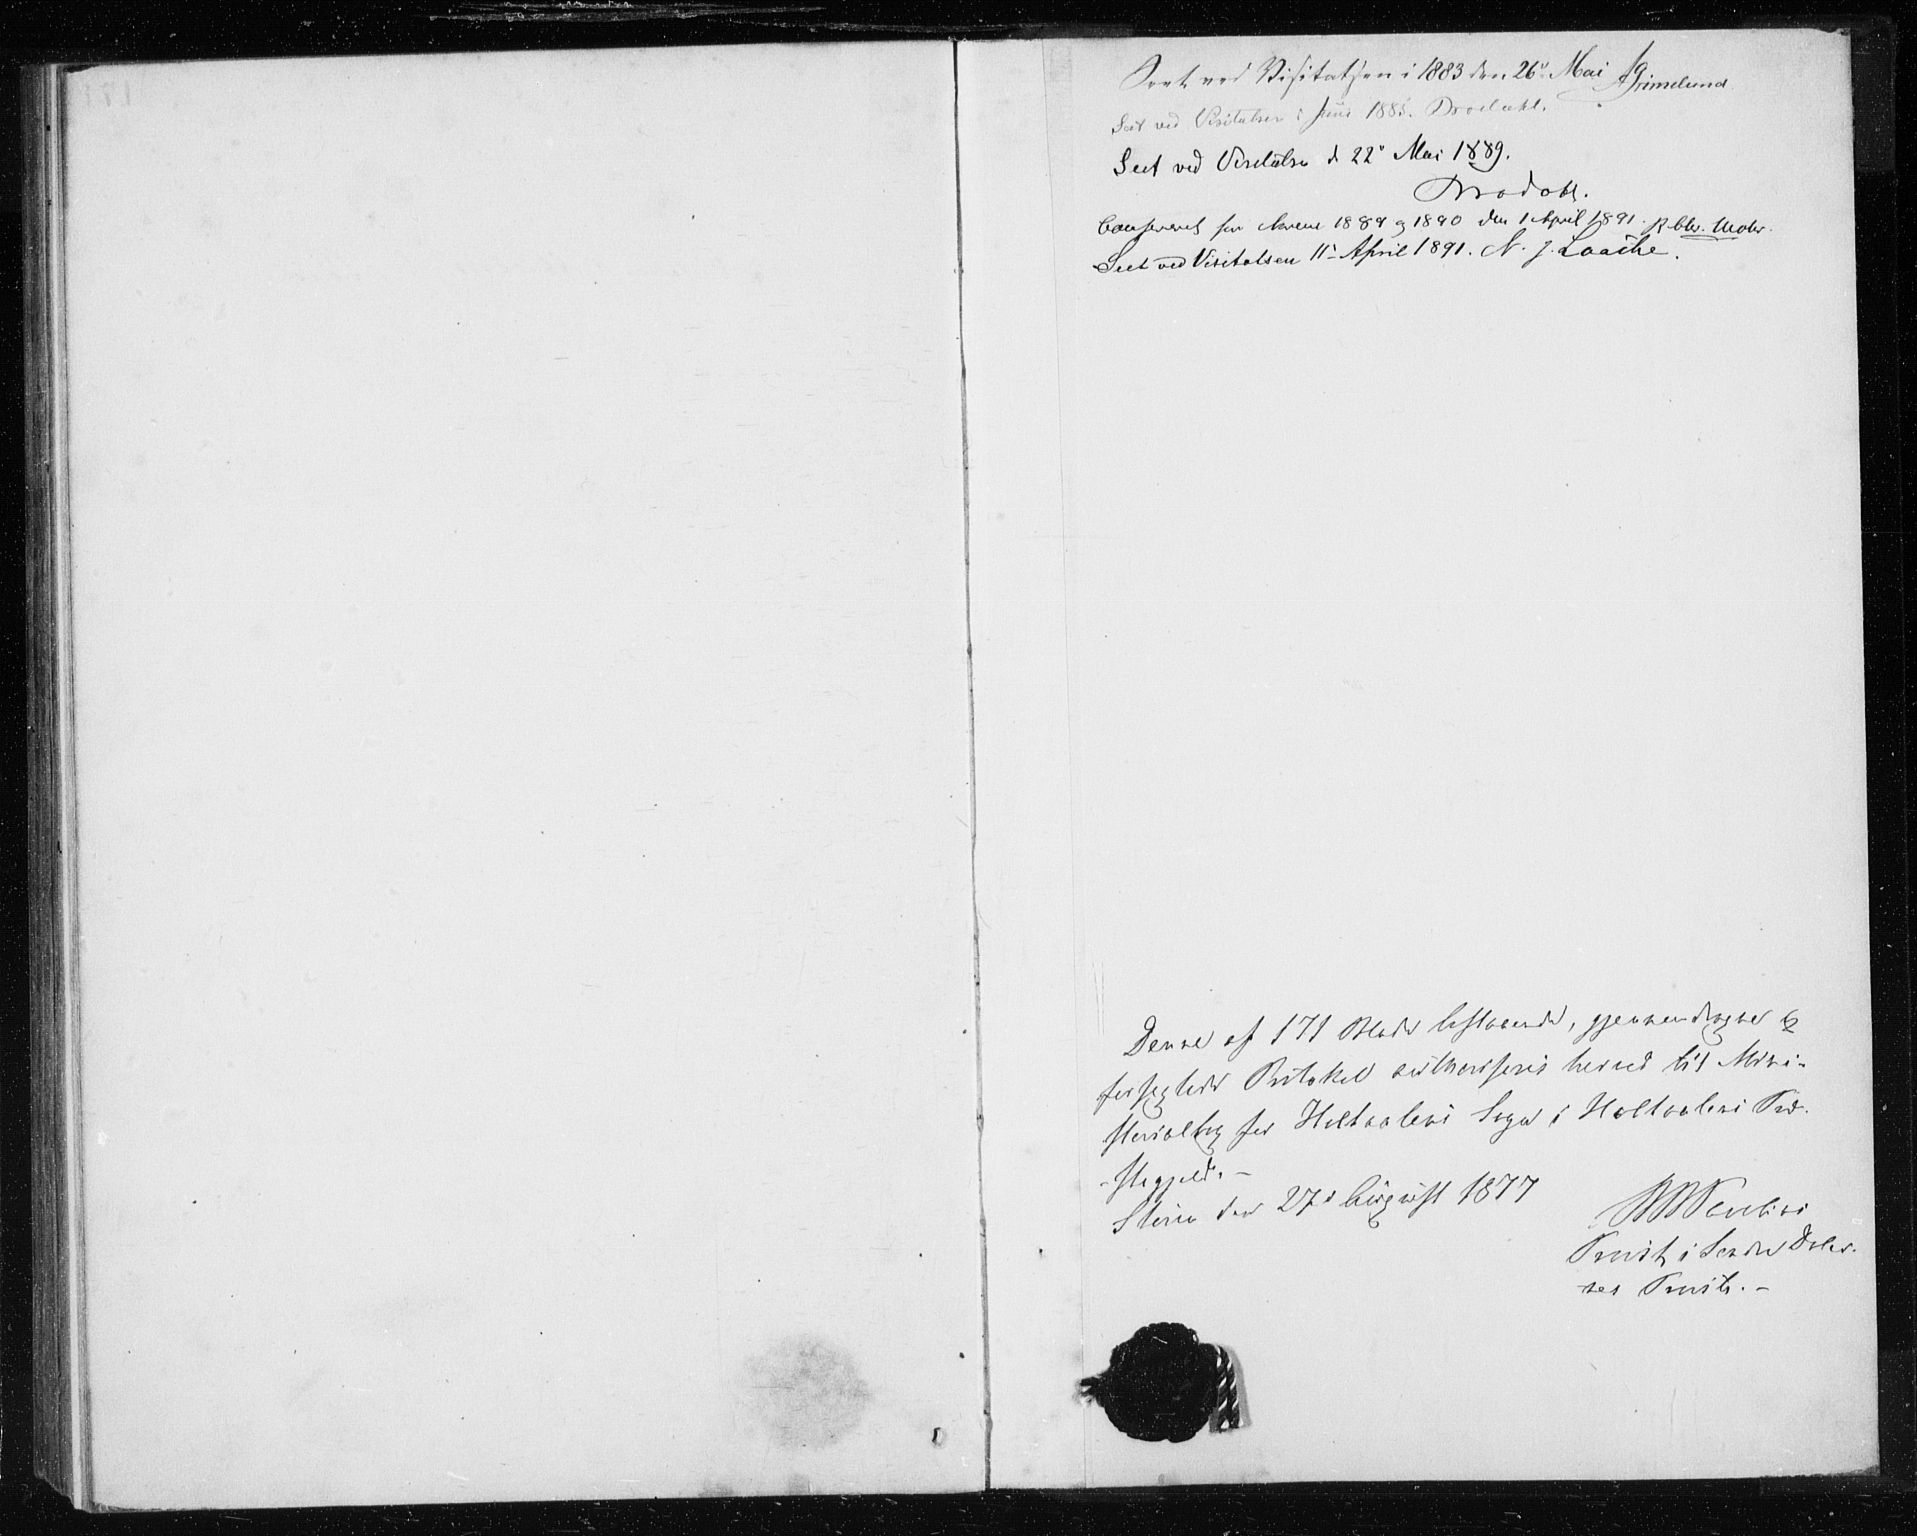 Seet ved Visitatsen i 1883 den 26de Mai AGrimelund
Seet ved Visitatsen i Juni 1885. Brodahl.
Seet ved Visitatsen d 22de Mai 1889.
Brodahl.
Confereret for Aarene 1889 og 1890 den 1 April 1891.
Seet ved Visitatsen 11te April 1891. N. J. Laache.
Denne af 171 Blade bestaaende, gjennemdragne og
forseglede Protokol authoriseres herved til Mini-
sterialbog for Holtaalens Sogn i Holtaalens Præ-
-stegjeld. -
Støren den 27de August 1877
Provst i Søndre Dale-
nes Provsti. -